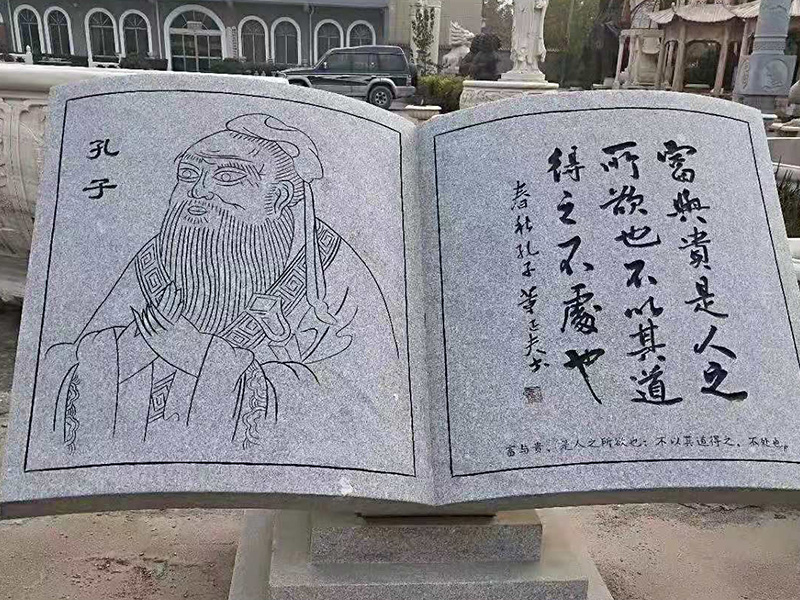 孔子
富與貴是人之
所欲也不以其道
得之不處也
春秋孔子 董正夫书
富与贵，是人之所欲也；不以其道得之，不处也。